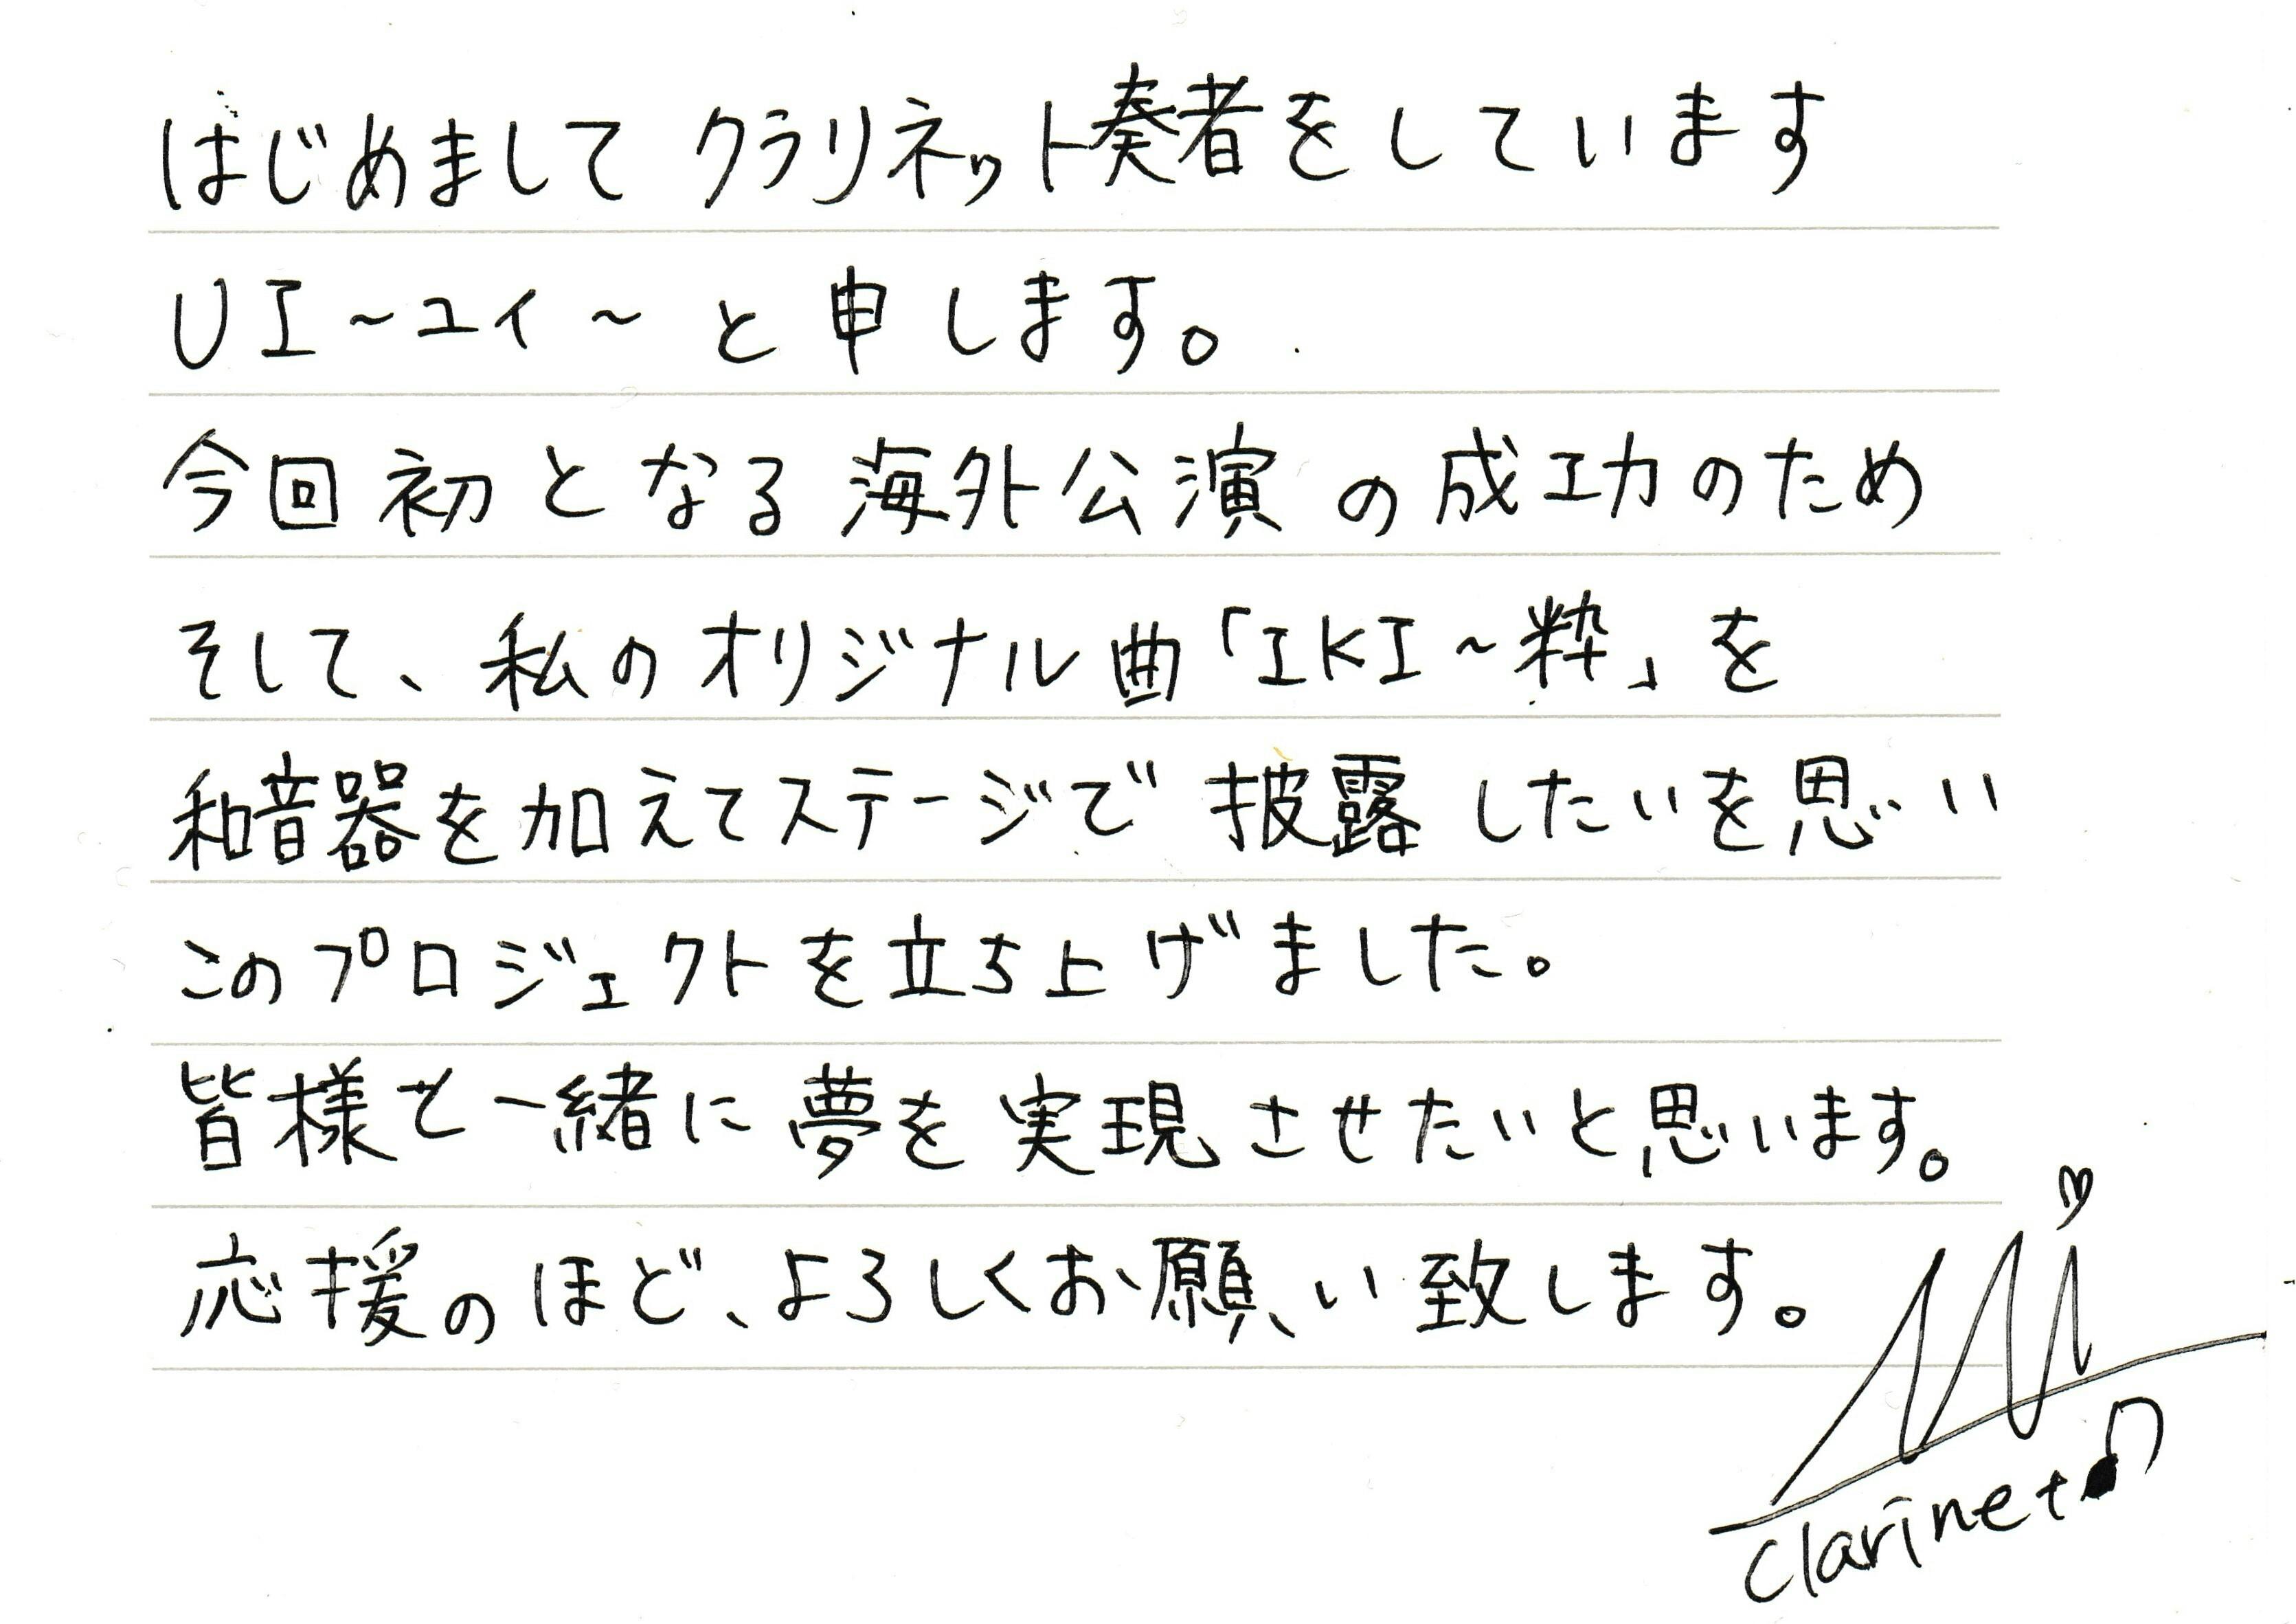 はじめまして クラリネット奏者をしています
UI～ユイ～と申します。
今回初となる海外公演の成功のため
そして、私のオリジナル曲「IKI～粋」を
和音器を加えてステージで披露したいを思い
このプロジェクトを立ち上げました。
皆様と一緒に夢を実現させたいと思います。
応援のほど、よろしくお願い致します。
clarinet♪